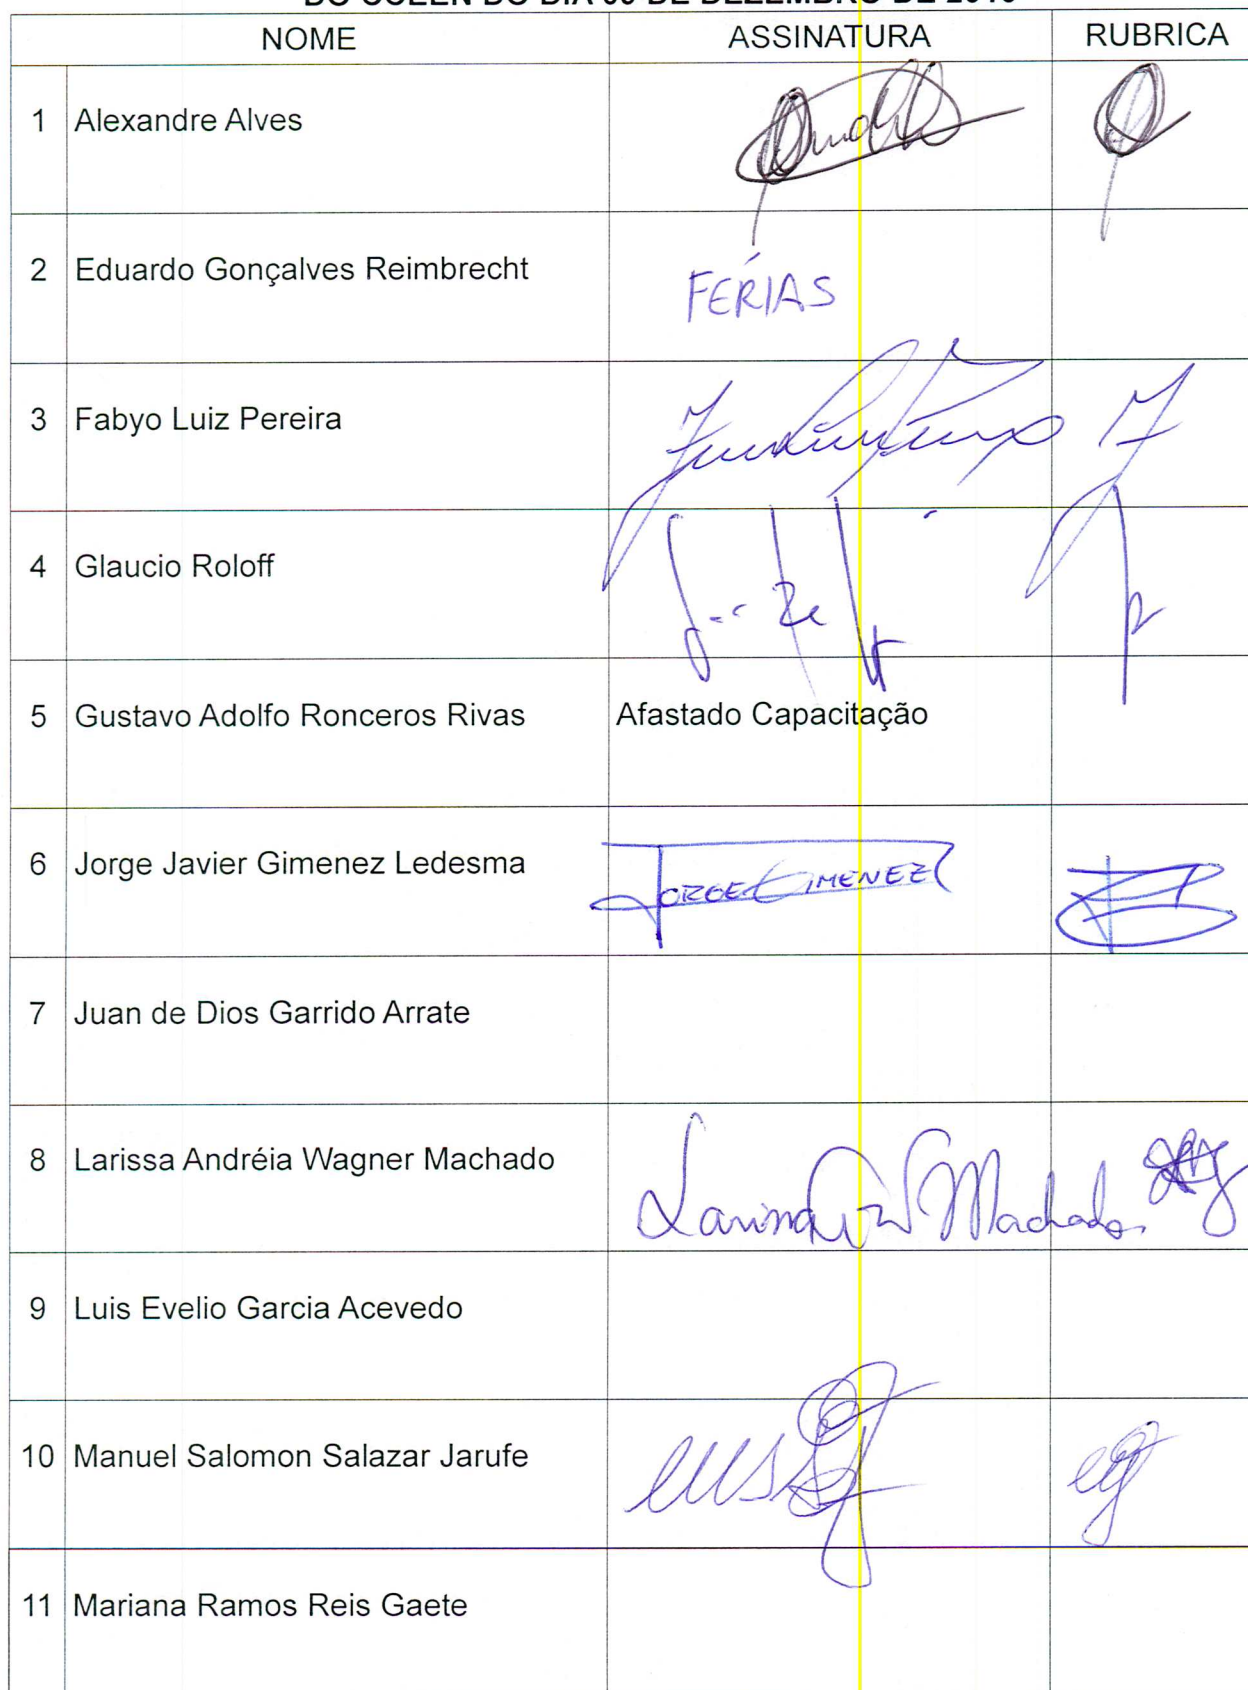 NOME ASSINATURA RUBRICA
1 Alexandre Alves
2 Eduardo Gonçalves Reimbrecht FÉRIAS
3 Fabyo Luiz Pereira
4 Glaucio Roloff
5 Gustavo Adolfo Ronceros Rivas Afastado Capacitação
6 Jorge Javier Gimenez Ledesma JORGE GIMENEZ
7 Juan de Dios Garrido Arrate
8 Larissa Andréia Wagner Machado Larissa W Machado
9 Luis Evelio Garcia Acevedo
10 Manuel Salomon Salazar Jarufe
11 Mariana Ramos Reis Gaete